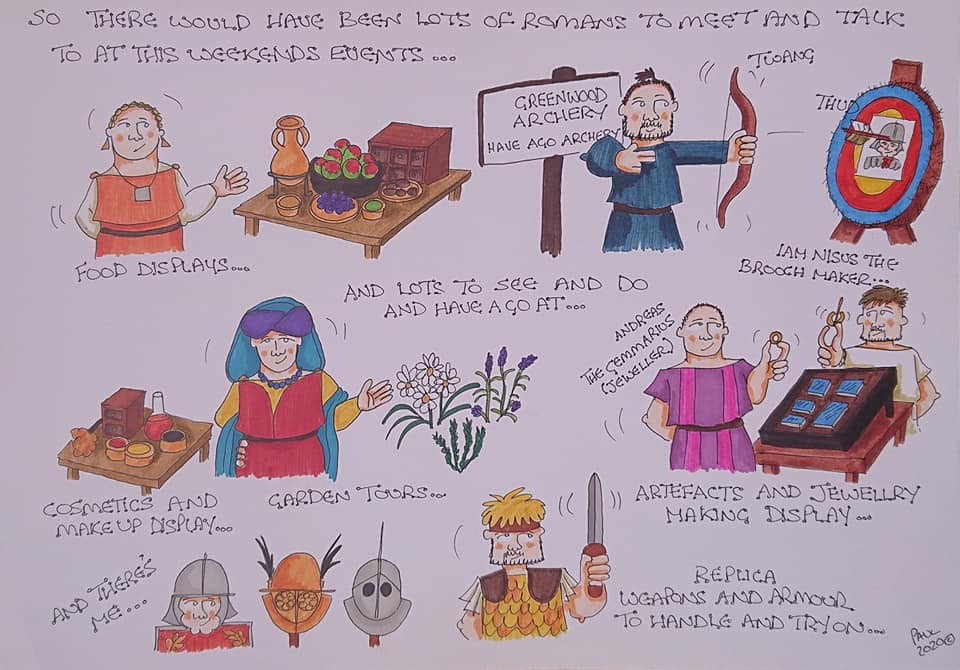 SO THERE WOULD HAVE BEEN LOTS OF ROMANS TO MEET AND TALK
TO AT THIS WEEKENDS EVENTS...
FOOD DISPLAYS...
GREENWOOD
ARCHERY
HAVE AGO ARCHERY
TWANG
THUD
AND LOTS TO SEE AND DO
AND HAVE A GO AT...
IAM NISUS THE
BROOCH MAKER...
ANDREAS
THE GEMMARIUS
(JEWELLER)
COSMETICS AND
MAKE UP DISPLAY...
GARDEN TOURS...
ARTEFACTS AND JEWELLRY
MAKING DISPLAY...
AND THERE'S
ME...
REPLICA
WEAPONS AND ARMOUR
TO HANDLE AND TRY ON...
PAUL
2020©